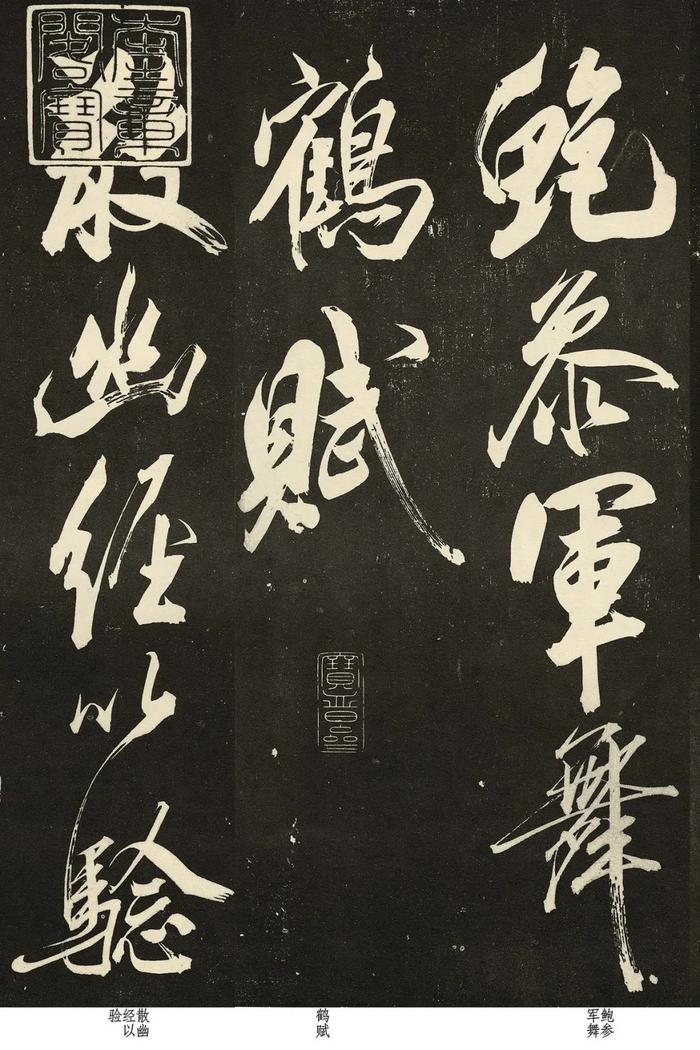 鮑參軍舞
鶴賦
寶晉齋
散幽經以驗
奎章
閣寶
鲍参
军舞
鹤赋
散幽
经以
验